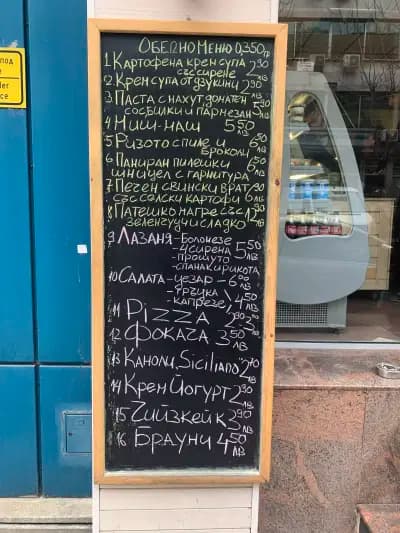 под
der
ce
Обедно Меню 0,350гр
1 Картофена крем супа
със сирене 2 90 лв
2 Крем супа от дзукини 2 90 лв
3 Паста с нахут, доматен
сос, билки и пармезан 5 90 лв
4 Миш-маш 5 50 лв
5 Ризото с пиле и
броколи 6 50 лв
6 Паниран пилешки
шницел с гарнитура 6 50 лв
7 Печен свински врат
със селски картофи 6 90 лв
8 Патешко магре със
зеленчуци сладко 12 90 лв
9 Лазаня - Болонезе
- 4 сирена
- прошуто
- спанак и рикота 5 50 лв
10 Салата - цезар - 6 00 лв
- гръцка
- капрезе 4 50 лв
11 Pizza
12 Фокача 3 50 лв
13 Каноли Siciliano 2 70 лв
14 Крем Йогурт 2 90 лв
15 Чийзкейк 3 90 лв
16 Брауни 4 50 лв